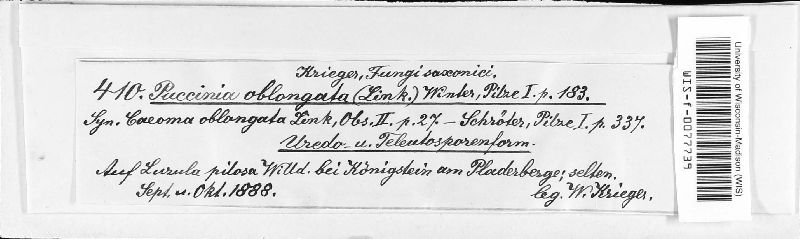 Krieger, Fungi saxonici.
410. Puccinia oblongata (Link.) Winter, Pilze I. p. 183.
Syn. Caeoma oblongata Link, Obs. II. p. 27. – Schröter, Pilze, I. p. 337.
Uredo- u. Teleutosporenform.
Auf Luzula pilosa Willd. bei Königstein am Pladerberge; selten.
Sept. u. Okt. 1888. leg. W. Krieger.
University of Wisconsin-Madison (WIS)
WIS-f-0077739